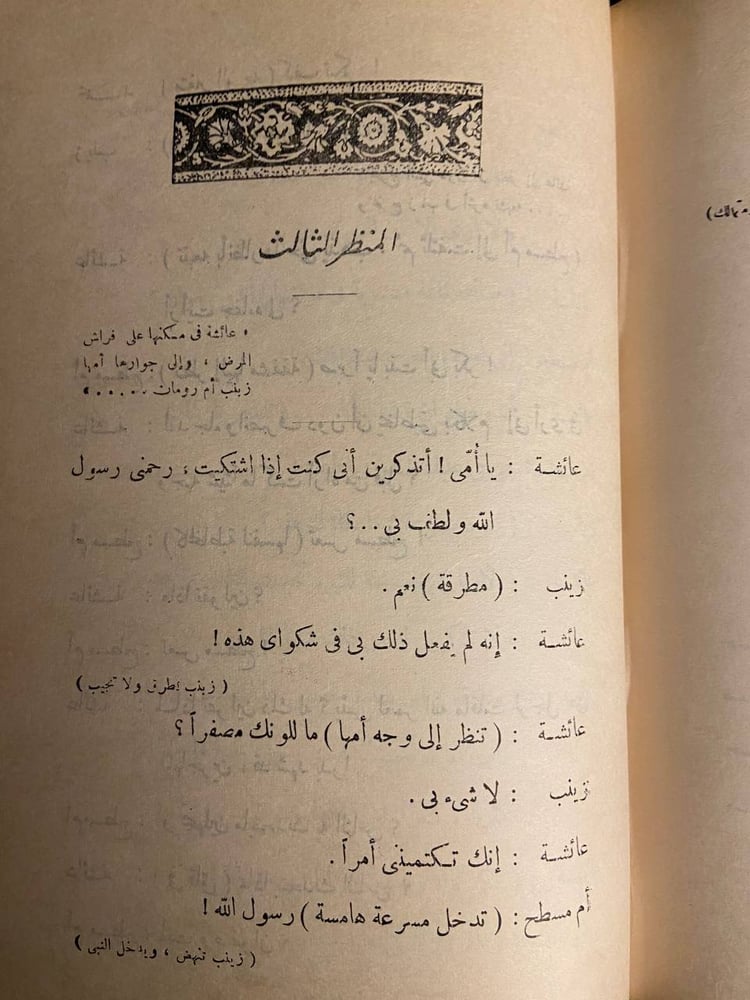 المنظر الثالث
« عائشة فى مسكنها على فراش
المرض ، وإلى جوارها أمها
زينب أم رومان ..... »
عائشة : يا أُمّى ! أتذكرين أنى كنت إذا اشتكيت ، رحمنى رسول
الله ولطف بى ..؟
زينب : ( مطرقة ) نعم .
عائشة : إنه لم يفعل ذلك بى فى شكواى هذه !
( زينب تطرق ولا تجيب )
عائشة : ( تنظر إلى وجه أمها ) ما للونك مصفراً ؟
زينب : لا شىء بى .
عائشة : إنك تكتميننى أمراً .
أم مسطح : ( تدخل مسرعة هامسة ) رسول الله !
( زينب تنهض ، ويدخل النبى )